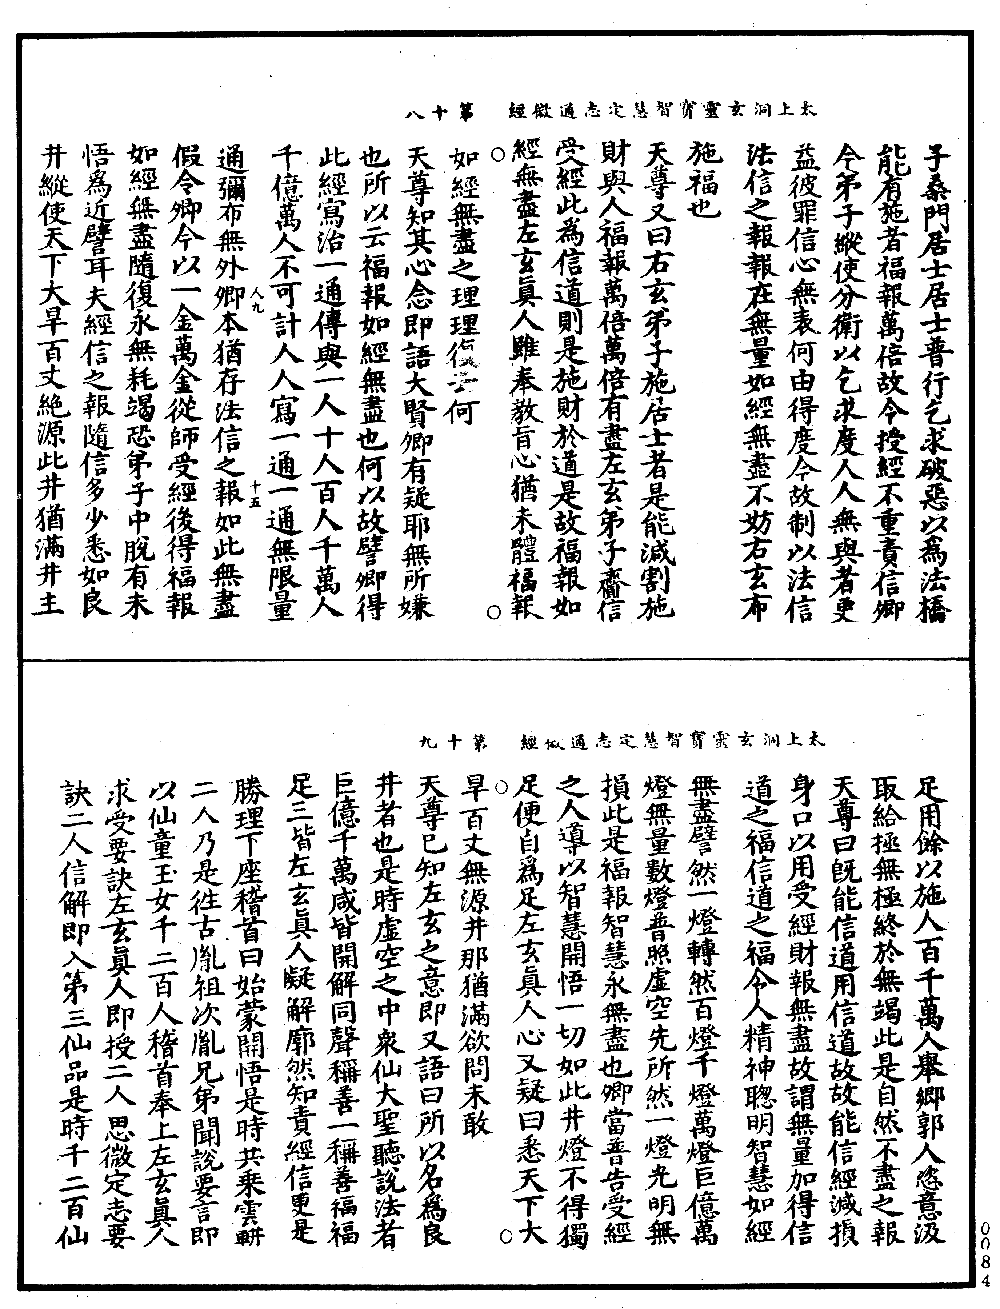 太上洞玄靈寶智慧定志通微經　第十八
子桑門居士居士普行乞求破惡以為法橋
能有施者福報萬倍故令授經不重責信卿
今弟子縱使分衛以乞求度人人無與者更
益彼罪信心無表何由得度今故制以法信
法信之報報在無量如經無盡不妨右玄布
施福也
天尊又曰右玄弟子施居士者是能減割施
財與人福報萬倍萬倍有盡左玄弟子齎信
受經此為信道則是施財於道是故福報如
經無盡左玄真人雖奉教旨心猶未體福報
如經無盡之理理復云何
天尊知其心念即語大賢卿有疑耶無所嫌
也所以云福報如經無盡也何以故譬卿得
此經寫治一通傳與一人十人百人千萬人
千億萬人不可計人人寫一通一通無限量
八九　十五
通彌布無外卿本猶存法信之報如此無盡
假令卿今以一金萬金從師受經後得福報
如經無盡隨復永無耗竭恐弟子中脫有未
悟為近譬耳夫經信之報隨信多少悉如良
井縱使天下大旱百丈絕源此井猶滿井主
太上洞玄靈寶智慧定志通微經　第十九
足用餘以施人百千萬人舉鄉郭人恣意汲
取給極無極終於無竭此是自然不盡之報
天尊曰既能信道用信道故故能信經減損
身口以用受經財報無盡故謂無量加得信
道之福信道之福令人精神聰明智慧如經
無盡譬然一燈轉然百燈千燈萬燈巨億萬
燈無量數燈普照虛空先所然一燈光明無
損此是福報智慧永無盡也卿當普告受經
之人導以智慧開悟一切如此井燈不得獨
足便自為足左玄真人心又疑曰悉天下大
旱百丈無源井那猶滿欲問未敢
天尊已知左玄之意即又語曰所以名為良
井者也是時虛空之中眾仙大聖聽說法者
巨億千萬咸皆開解同聲稱善一稱善福福
足三皆左玄真人疑解廓然知責經信更是
勝理下座稽首曰始蒙開悟是時共乘雲軿
二人乃是往古胤祖次胤兄弟聞說要言即
以仙童玉女千二百人稽首奉上左玄真人
求受要訣左玄真人即授二人思微定志要
訣二人信解即入第三仙品是時千二百仙
0084